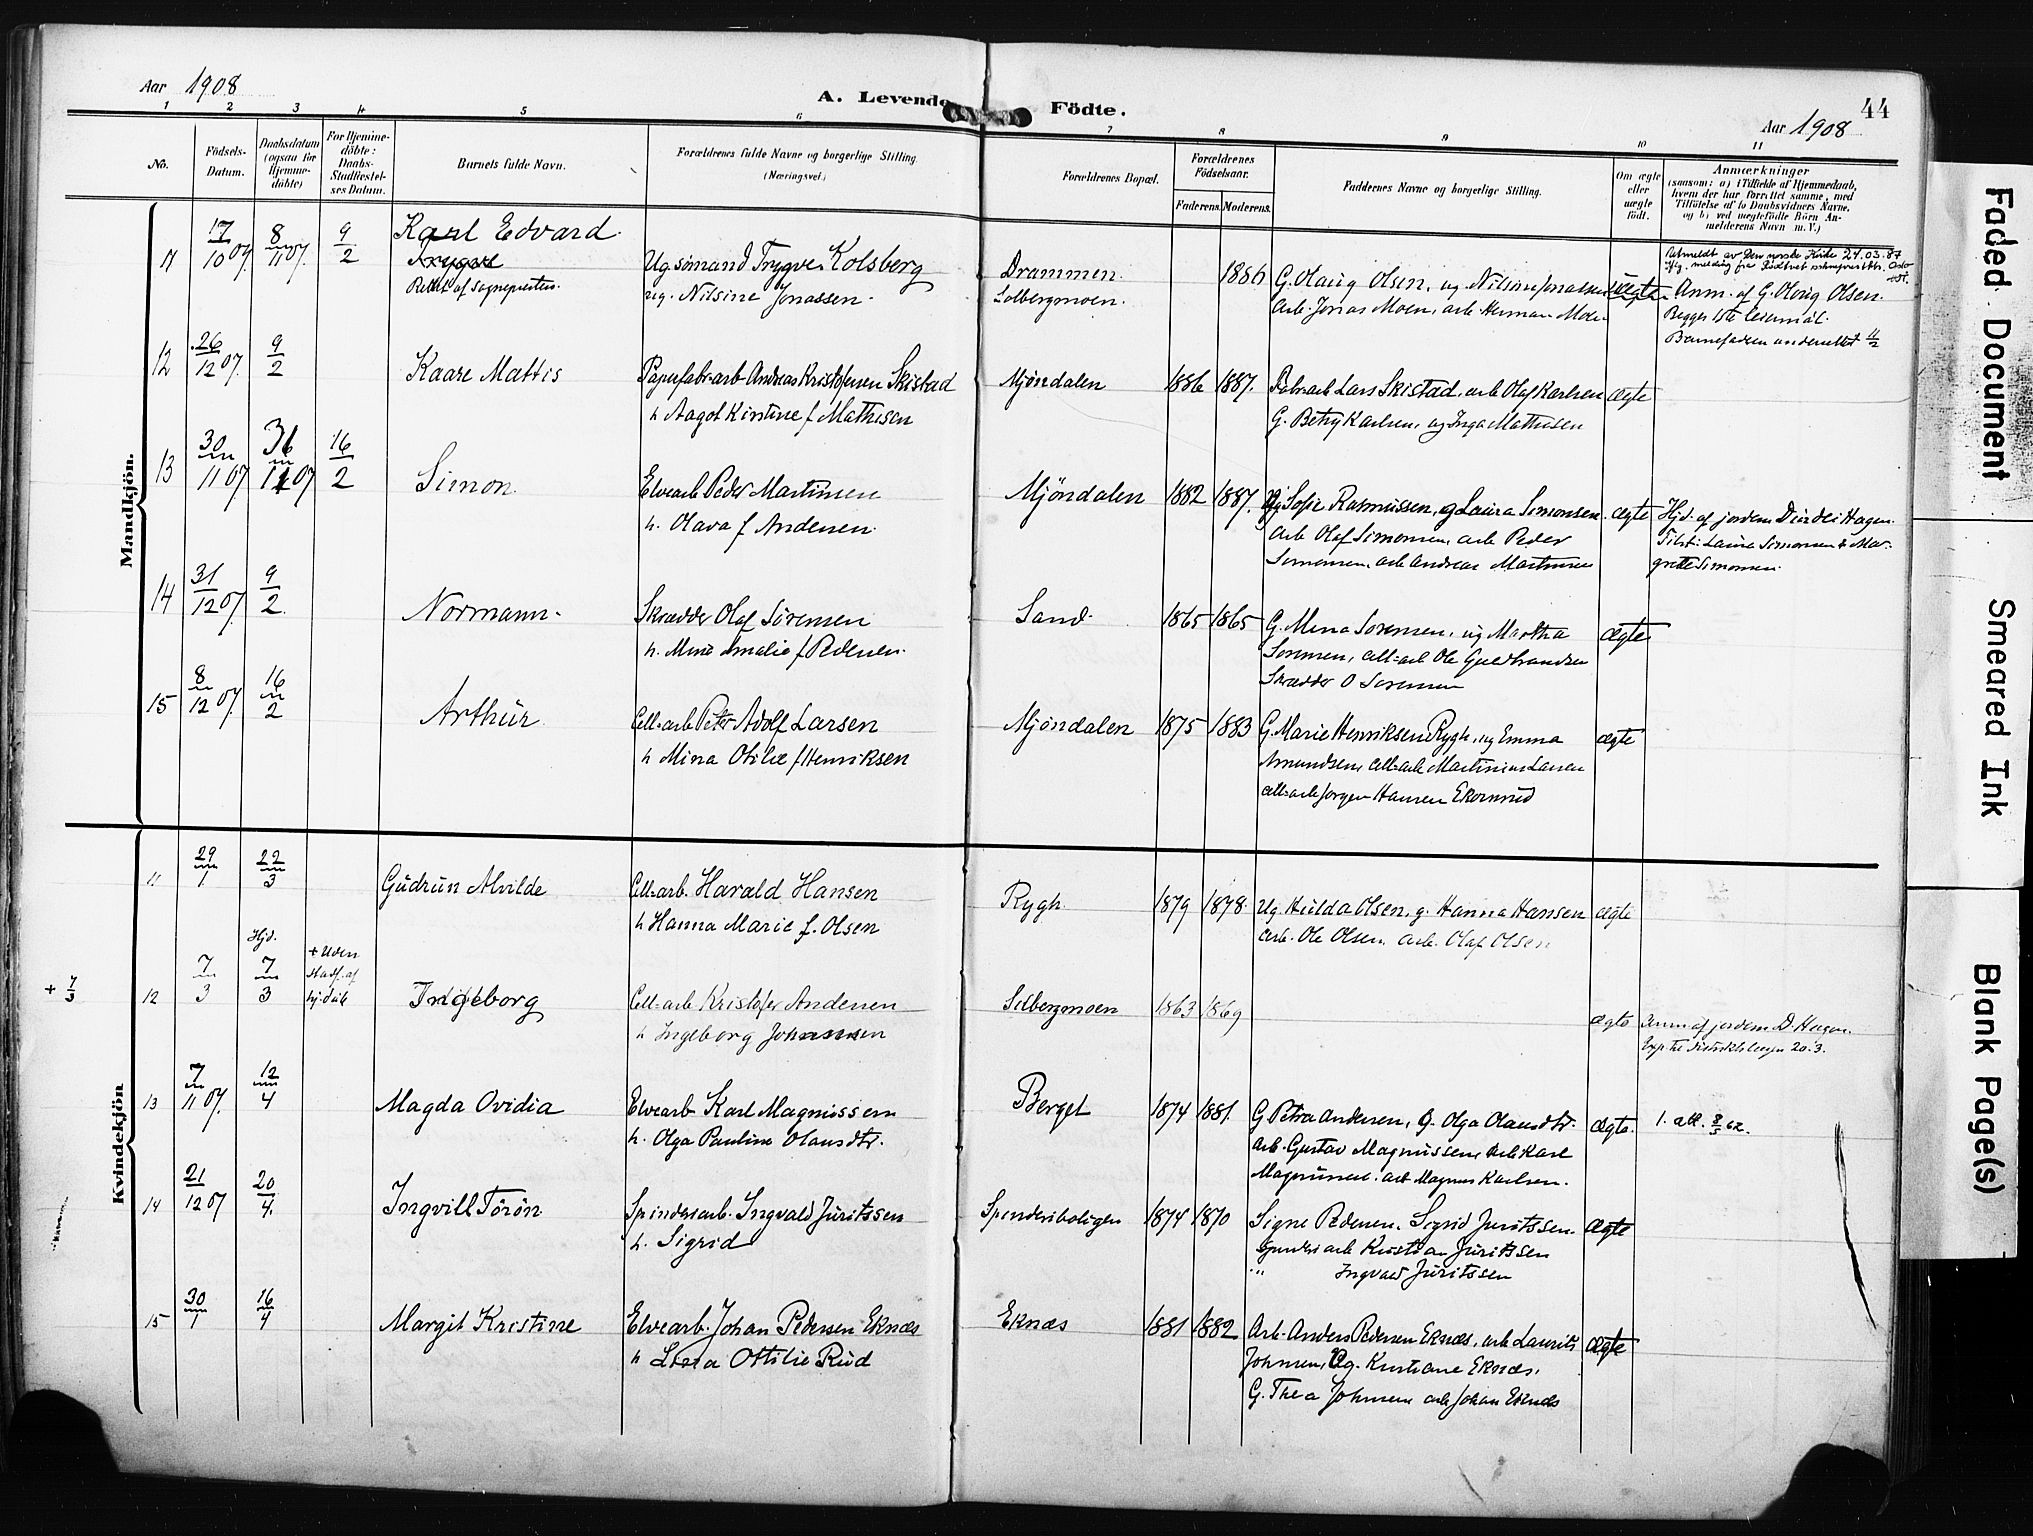 Aar 1908
A. Levende Födte.
44
Aar 1908
1 2 3 4 5 6 7 8 9 10 11
No.
Födsels-Datum.
Daabsdatum (ogsaa for Hjemme-döbte)
For Hjemme-döbte: Daabs-Stadfæstel-ses Datum.
Barnets fulde Navn.
Forældrenes fulde Navne og borgerlige Stilling.
(Næringsvei.)
Forældrenes Bopæl.
Forældrenes Födselsaar.
Faderens. Moderens.
Faddernes Navne og borgerlige Stilling.
Om ægte eller uægte födt.
Anmærkninger
(saasom: a) i Tilfælde af Hjemmedaab,
hvem der har forrettet samme, med
Tilföielse af to Daabsvidners Navne,
og b) ved uægtefödte Börn An-
melderens Navn m. V.)
Mandkjön.
11 17/10 07. 8/11 07. 9/2 Karl Edvard
Trygve
Rettet af sognepresten.
Ug. sömand Trygve Kolsberg
ug. Nilsine Jonassen.
Drammen.
Solbergmoen.
1886
G. Olaug Olsen, ug Nilsine Jonassen
arb. Jonas Moen, arb Herman Moen
uægte
Utmeldt av Den norske Kirke 24.03.87
Anm. af G. Olaug Olsen.
Begges 1ste leiermål.
Barnefaderen underrettet 11/2
12 26/12 07. 9/2 Kaare Mattis
Papirfabr-arb Andreas Kristofersen Skistad
h. Aagot Kirstine f Mathisen
Mjöndalen 1886 1887.
Fabr-arb Lars Skistad, arb Olaf Karlsen
G. Betzy Karlsen, ug Inga Mathisen
ægte
13 30/11 07 31/12 07 16/2 Simon
Elvearb Peder Martinsen
h. Olava f Andersen.
Mjöndalen 1882 1887.
Ug Sofie Rasmussen, g Laura Simonsen
arb Olaf Simonsen, arb Peder
Simonsen, arb Andreas Martinsen
ægte
Hjd. af jordem Diærdei Hagen
Tilst: Laura Simonsen & Mar-
grethe Simonsen.
14 31/12 07 9/2 Normann.
Skrædder Olaf Sörensen
h. Mina Amalie f Pedersen.
Sand. 1865 1865
G. Mina Sorensen, ug Martha
Sorensen, cell-arb Ole Guldbrandsen
Skrædder O Sorensen
ægte
15 8/12 07. 16/2 Arthur
Cell-arb Peter Adolf Larsen
h Mina Otilie f Henriksen
Mjöndalen 1875 1883
G. Marie Henriksen Rygh, ug Emma
Amundsen, cell-arb Martinius Larsen
cell-arb Jorgen Hansen Ekornrud
ægte
Kvindekjön
11 29/1 22/3 Gudrun Alvilde
Cell-arb. Harald Hansen
h Hanna Marie f. Olsen
Rygh. 1879 1878.
Ug. Hulda Olsen, g. Hanna Hansen
arb. Ole Olsen, arb. Olaf Olsen
ægte
+ 7/3
12 7/3 Hjd. 7/3 + Uden stadf. af hjdåb Ingeborg
Cell-arb Kristofer Andersen
h Ingeborg Johannsen
Solbergmoen 1863 1869
ægte
Anm af jordem D. Hagen.
Exp til distriktslægen 20.3.
13 7/11 07. 12/4 Magda Ovidia
Elvearb Karl Magnussen
h. Olga Pauline Olausdtr.
Berget 1874 1881.
G Petra Andersen, G. Olga Olausdtr.
arb. Gustav Magnussen, arb Karl
Magnussen. arb Magnus Karlsen.
ægte.
1. att. 8/5 62.
14 21/12 07 20/4. Ingvill Torön
Spinderarb. Ingvald Juritssen
h. Sigrid
Spinderiboligen 1874 1870
Signe Pedersen. Sigrid Juritssen.
Spinderi arb Kristian Juritssen
" Ingvald Juritssen
ægte
15 30/1 16/4 Margit Kristine
Elvearb. Johan Pedersen Eknæs
h Lina Ottilie Rud
Eknæs 1881 1882
Arb. Anders Pedersen Eknæs, arb Laurits
Johnsen, Ug. Kristiane Eknæs.
G. Thea Johnsen arb Johan Eknæs
ægte
Faded Document
Smeared Ink
Blank Page(s)